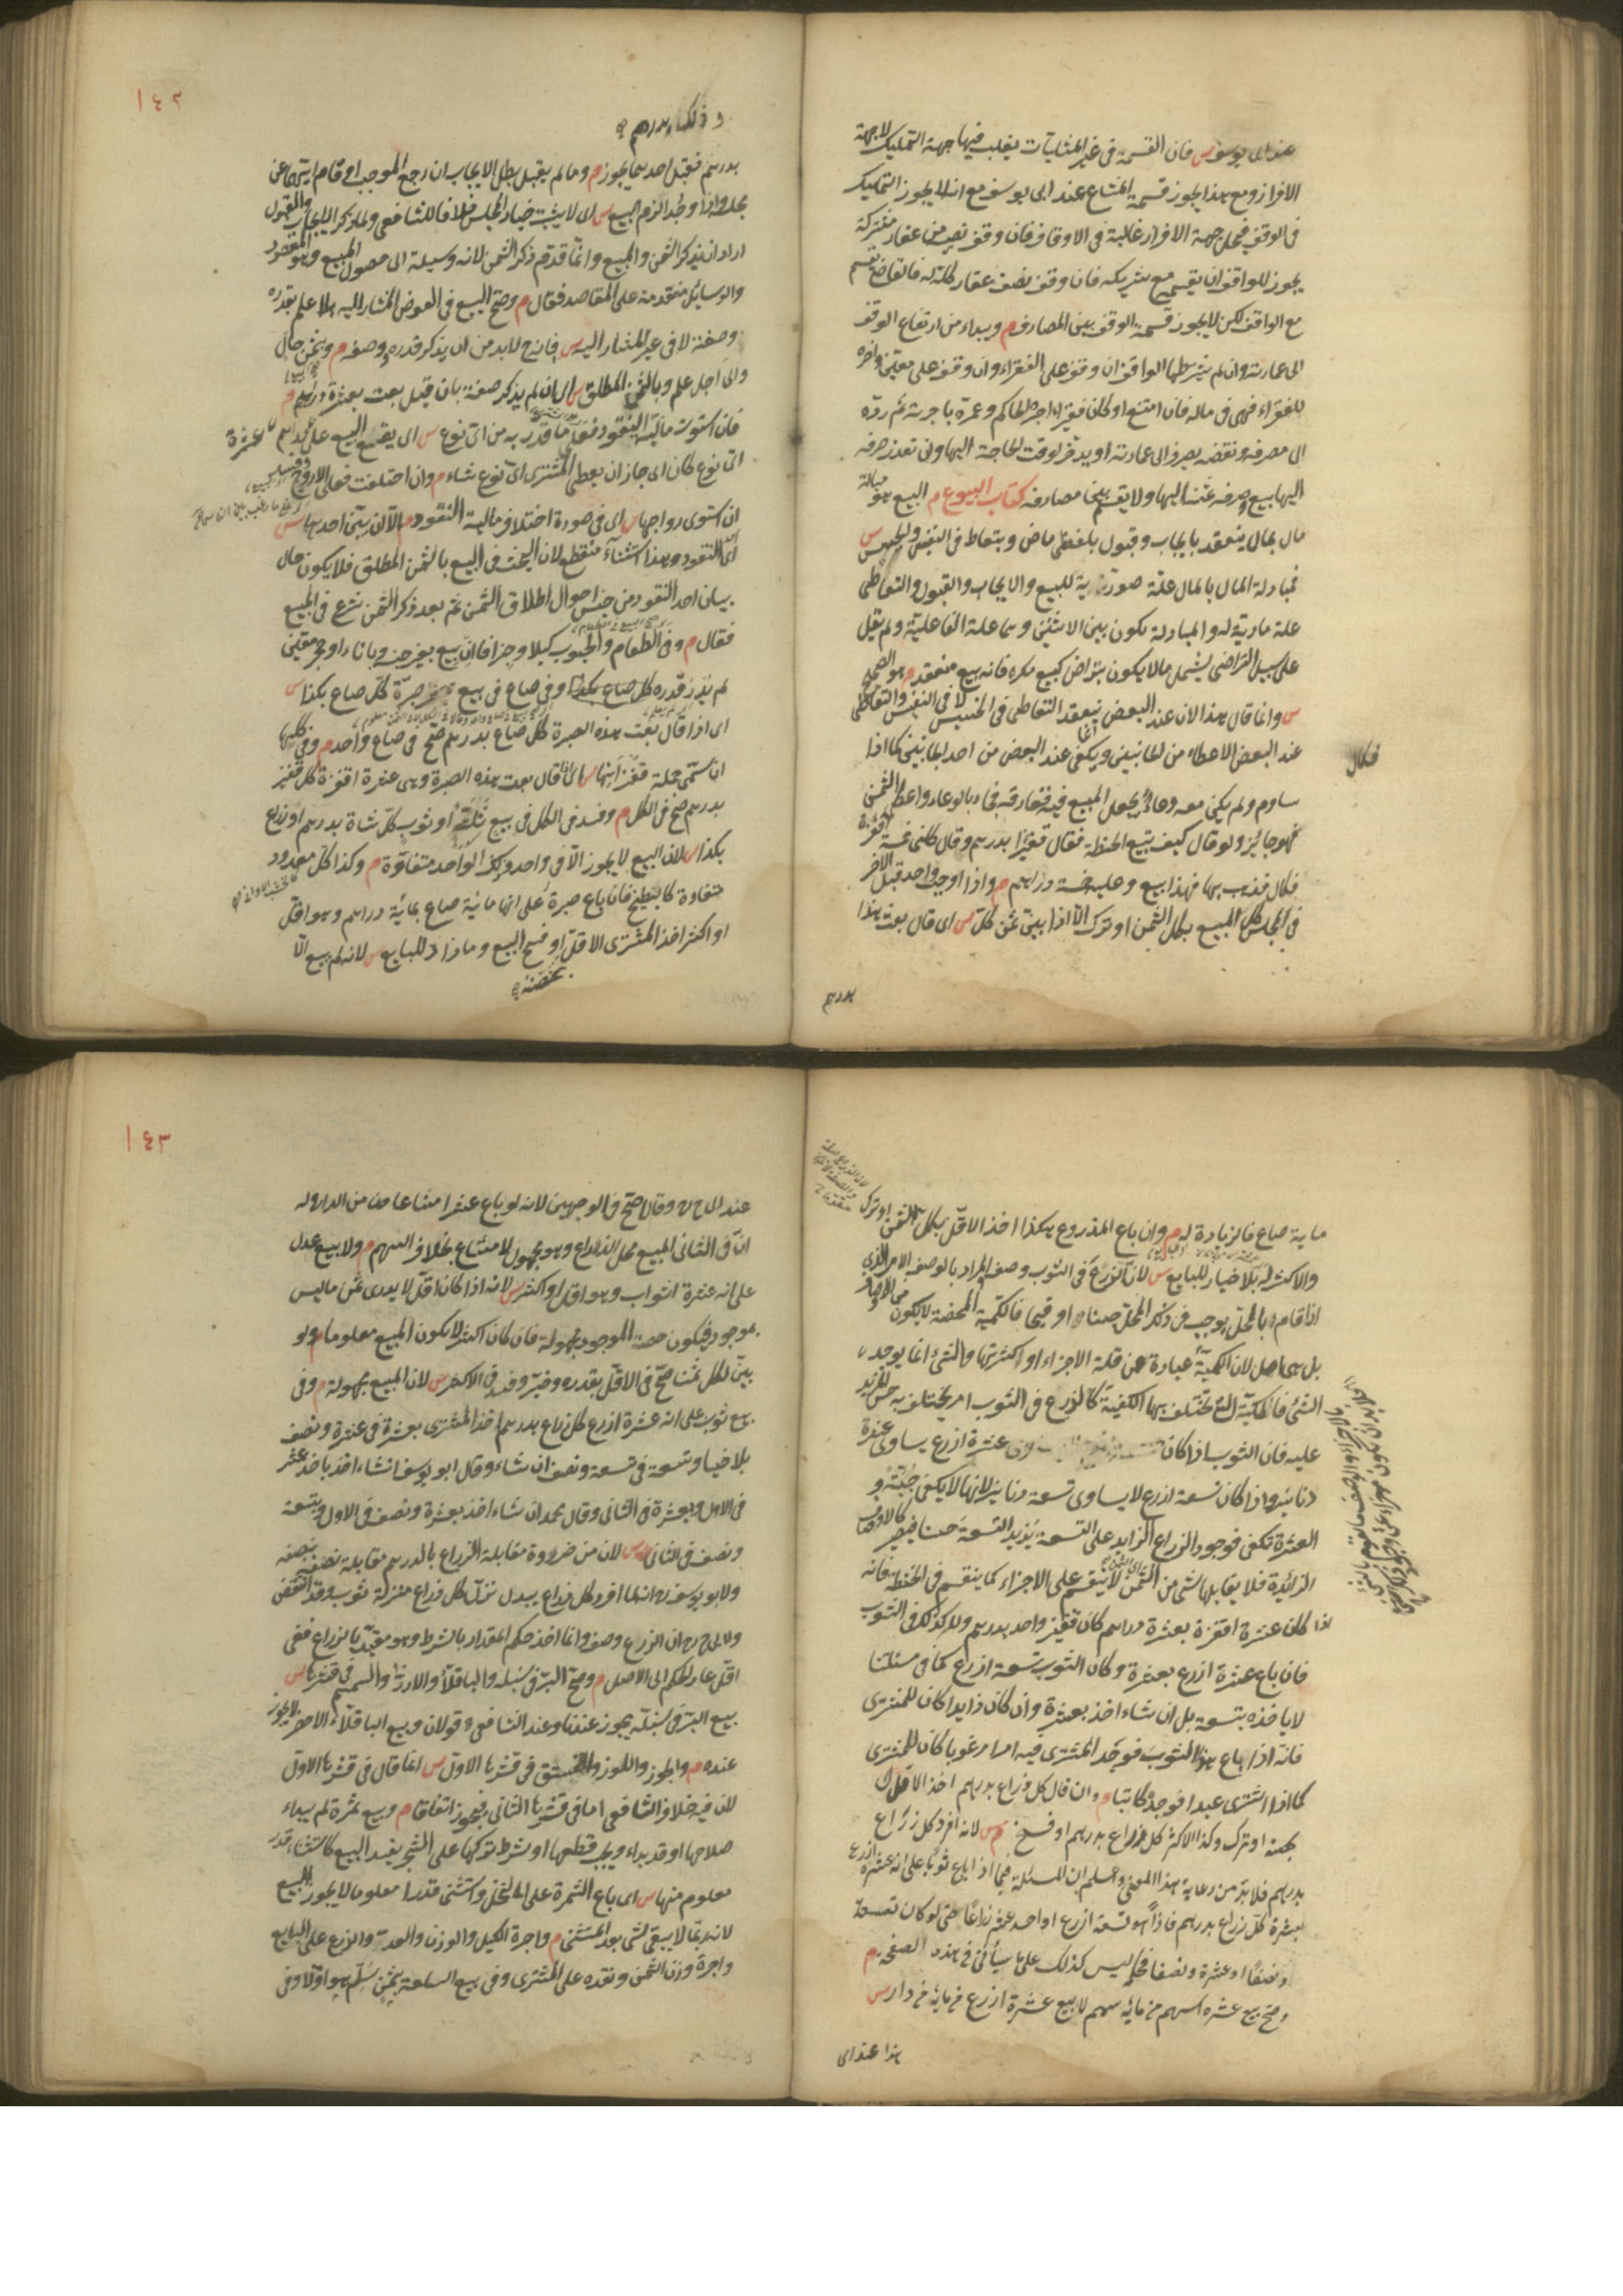 عند ابى يوسف س فان القسمة فى غير المثليات يغلب فيها جهة التمليك لا جهة
الافراز ومع هذا يجوز قسمة المشاع عند ابى يوسف مع انه لا يجوز التمليك
فى الوقف فجعل جهة الافراز غالبة فى الاوقاف فان وقف نصيبه من عقار مشتركة
يجوز للواقف ان يقسمه مع شريكه فان وقف نصف عقار كله له فالقاضى يقسم
مع الواقف لكن لا يجوز قسمة الوقف بين المصارف م ويبداء من ارتفاع الوقف
الى عمارته وان لم يشرطها الواقف ان وقف على الفقراء وان وقف على معين وآخره
للفقراء فهى فى ماله فان امتنع او كان فقيرا اجره الحاكم وعمره باجرته ثم رده
الى مصرفه ونقضه يصرف الى عمارته او يدخر لوقت الحاجة اليها وان تعذر صرفه
اليها بيع وصرف ثمنه اليها ولا يقسم بين مصارفه كتاب البيوع م البيع هو مبادلة
مال بمال ينعقد بايجاب وقبول بلفظى ماض وبتعاط فى النفيس والخسيس س
فمبادلة المال بالمال علة صورية للبيع والايجاب والقبول والتعاطى
علة مادية له والمبادلة يكون بين الاثنين وهما علة الفاعلية ولم يقل
على سبيل التراضى ليشمل ما لا يكون بتراض كبيع مكره فانه بيع منعقد م هو الصحيح
س وانما قال هذا لان عند البعض ينعقد التعاطى فى الخسيس لا فى النفيس والتعاطى
عند البعض الاعطاء من الجانبين ويكفى عند البعض من احد الجانبين كما اذا
ساوم ولم يكن معه وعاء يجعل المبيع فيه ففارقه فجاء بالوعاء واعطى الثمن
فهو جائز ولو قال كيف تبيع الحنطة فقال قفيزا بدرهم وقال كلنى خمسة اقفزة
فكال فذهب بها فهذا بيع وعليه خمسة دراهم م واذا اوجب واحد قبل الآخر
فى المجلس كل المبيع بكل الثمن او ترك الا اذا بين ثمن كل س اى قال بعت هذا
فكال
بدرهم
١٤٢
وذلك بدرهم
بدرهم فقبل احدهما يجوز م وما لم يقبل بطل الايجاب ان رجع الموجب او قام ايهما عن
مجلسه واذا وجدا لزم البيع س اى لا يثبت خيار المجلس خلافا للشافعى ولما ذكر الايجاب والقبول
اراد ان يذكر الثمن والمبيع وانما قدم ذكر الثمن لانه وسيلة الى حصول المبيع وهو المقصود
والوسايل متقدمة على المقاصد فقال م وصح البيع فى العوض المشار اليه بلا علم بقدره
وصفته لا فى غير المشار اليه س فانه ح لابد من ان يذكر قدره وصفه م وبثمن حال
والى اجل علم وبالثمن المطلق س اى ان لم يذكر صفته بان قيل بعت بعشرة دراهم م
فان استوت مالية النقود فعلى ما قدر به من اى نوع س اى يقع البيع على عشرة دراهم
اى نوع كان اى جاز ان يعطى المشترى اى نوع شاء م وان اختلفت فعلى الاروج وفسد
ان استوى رواجها س اى فى صورة اختلاف مالية النقود م الا ان بين احدها س
اى النقود وهذا استثناء منقطع لان البحث فى البيع بالثمن المطلق فلا يكون حال
بيان احد النقود من جنس احوال اطلاق الثمن ثم بعد ذكر الثمن شرع فى المبيع
فقال م وفى الطعام والحبوب كيلا وجزافا ان بيع بغير جنسه وباناء او حجر معين
لم يدر قدره كل صاع بكذا وفى صاع فى بيع صبرة كل صاع بكذا س
اى اذا قال بعت هذه الصبرة كل صاع بدرهم صح فى صاع واحد م وفى كلها
ان سمى جملة قفزانها س اى اذا قال بعت هذه الصبرة وهى عشرة اقفزة كل قفيز
بدرهم صح فى الكل م وفسد فى الكل فى بيع ثلة او ثوب كل شاة بدرهم او ذراع
بكذا س لان البيع لا يجوز الا فى واحد وذلك الواحد متفاوة م وكذا كل معدود
متفاوة كالبطيخ فان باع صبرة على انها مائية صاع بمائية دراهم وهو اقل
او اكثر اخذ المشترى الاقل او فسخ البيع وما زاد للبايع س لانه لم يبيع الا
بحصته
ماية صاع فالزيادة له م وان باع المذروع هكذا اخذ الاقل بكل الثمن او ترك
والاكثر له بلا خيار للبايع س لان الذرع فى الثوب وصف المراد بالوصف الامر الذى
اذا قام بالمحل يوجب فى ذلك المحل حسنا او قبحا فالكمية المحضة لا يكون من الاوصاف
بل هى اصل لان الكمية عبارة عن قلة الاجزاء او كثرتها والشئ انما يوجد
الشئ فالكمية التى تختلف بها الكيفية كالذرع فى الثوب امر يختلف به حسن المزيد
عليه فان الثوب اذا كان عشرة ازرع يساوى عشرة
دنانير واذا كان تسعة ازرع لا يساوى تسعة دنانير لانها لا يكفى جبة و
العشرة تكفى فوجود الزراع الزايد على التسعة يزيد التسعة حسنا فيصير كالاوصاف
الزائدة فلا يقابلها شئ من الثمن لا ينقسم على الاجزاء كما ينقسم فى الحنطة فانه
اذا كان عشرة اقفزة بعشرة دراهم كان قفيز واحد بدرهم ولا كذلك فى الثوب
فان باع عشرة ازرع بعشرة وكان الثوب تسعة ازرع كما فى مسئلتنا
لا ياخذه بتسعة بل ان شاء اخذ بعشرة وان كان زايدا كان للمشترى
فانه اذا باع هذا الثوب فوجد المشترى فيه امرا مرغوبا كان للمشترى
كما اذا اشترى عبدا فوجده كاتبا م وان قال كل ذراع بدرهم اخذ الاقل
بحصته او ترك وكذا الاكثر كل ذراع بدرهم او فسخ س لانه افرد كل زراع
بدرهم فلا بد من رعاية هذا المعنى واعلم ان المسئلة فيما اذا باع ثوبا على انه عشرة ازرع
بعشرة كل زراع بدرهم فاذا هو تسعة ازرع او احد عشر زراعا حتى لو كان تسعة
ونصفا او عشرة ونصفا فحكمه ليس كذلك على ما سيأتى فى هذه الصفحة م
وصح بيع عشرة اسهم من مائة سهم لا بيع عشرة ازرع من مائة من دار س
هذا عند ابى
١٤٣
عند ابى ح رح وقالا صح فى الوجهين لانه لو باع عشرا مشاعا من الدار وله
ان فى الثانى المبيع محل الذراع وهو مجهول لا مشاع بخلاف السهم م ولا بيع عدل
على انه عشرة اثواب وهو اقل او اكثر س لانه اذا كان اقل لا يدرى ثمن ما ليس
بموجود فيكون حصة الموجود مجهولة فان كان اكثر لا يكون المبيع معلوما م ولو
بين لكل ثمنا صح فى الاقل بقدره وخير وفسد فى الاكثر س لان المبيع مجهولة م وفى
بيع ثوب على انه عشرة ازرع كل ذراع بدرهم اخذ المشترى بعشرة فى عشرة ونصف
بلا خيار وتسعة فى تسعة ونصف ان شاء وقال ابو يوسف ان شاء اخذ باحد عشر
فى الاول وبعشرة فى الثانى وقال محمد ان شاء اخذ بعشرة ونصف فى الاول وبتسعة
ونصف فى الثانى س لان من ضرورة مقابلة الزراع بالدرهم مقابلة نصفه بنصفه
ولابو يوسف رح انه لما افرد كل ذراع ببدل نزل كل ذراع منزلة ثوب وقد انتقض
ولابى ح رح ان الزرع وصف وانما اخذ حكم المقدار بالشرط وهو مقيد بالزراع ففى
اقل عاد الحكم الى الاصل م وصح البر فى سنبله والباقلاء والارز والسمسم فى قشرها س
بيع البر فى سنبله يجوز عندنا وعند الشافعى وقولان وبيع الباقلاء الاخضر لا يجوز
عنده م والجوز واللوز والفستق فى قشرها الاول س انما قال فى قشرها الاول
لان فيه خلاف الشافعى اما فى قشرها الثانى فيجوز اتفاقا م وبيع ثمرة لم يبداء
صلاحها او قد بداء ويجب قطعها او شرط تركها على الشجر يفسد البيع كاستثناء قدر
معلوم منها س اى باع الثمرة على النخل واستثنى قدرا معلوما لا يجوز البيع
لانه ربما لا يبقى شئ بعد المستثنى م واجرة الكيل والوزن والعد والزرع على البايع
واجرة وزن الثمن ونقده على المشترى وفى بيع السلعة بثمن سلم هو اولا وفى